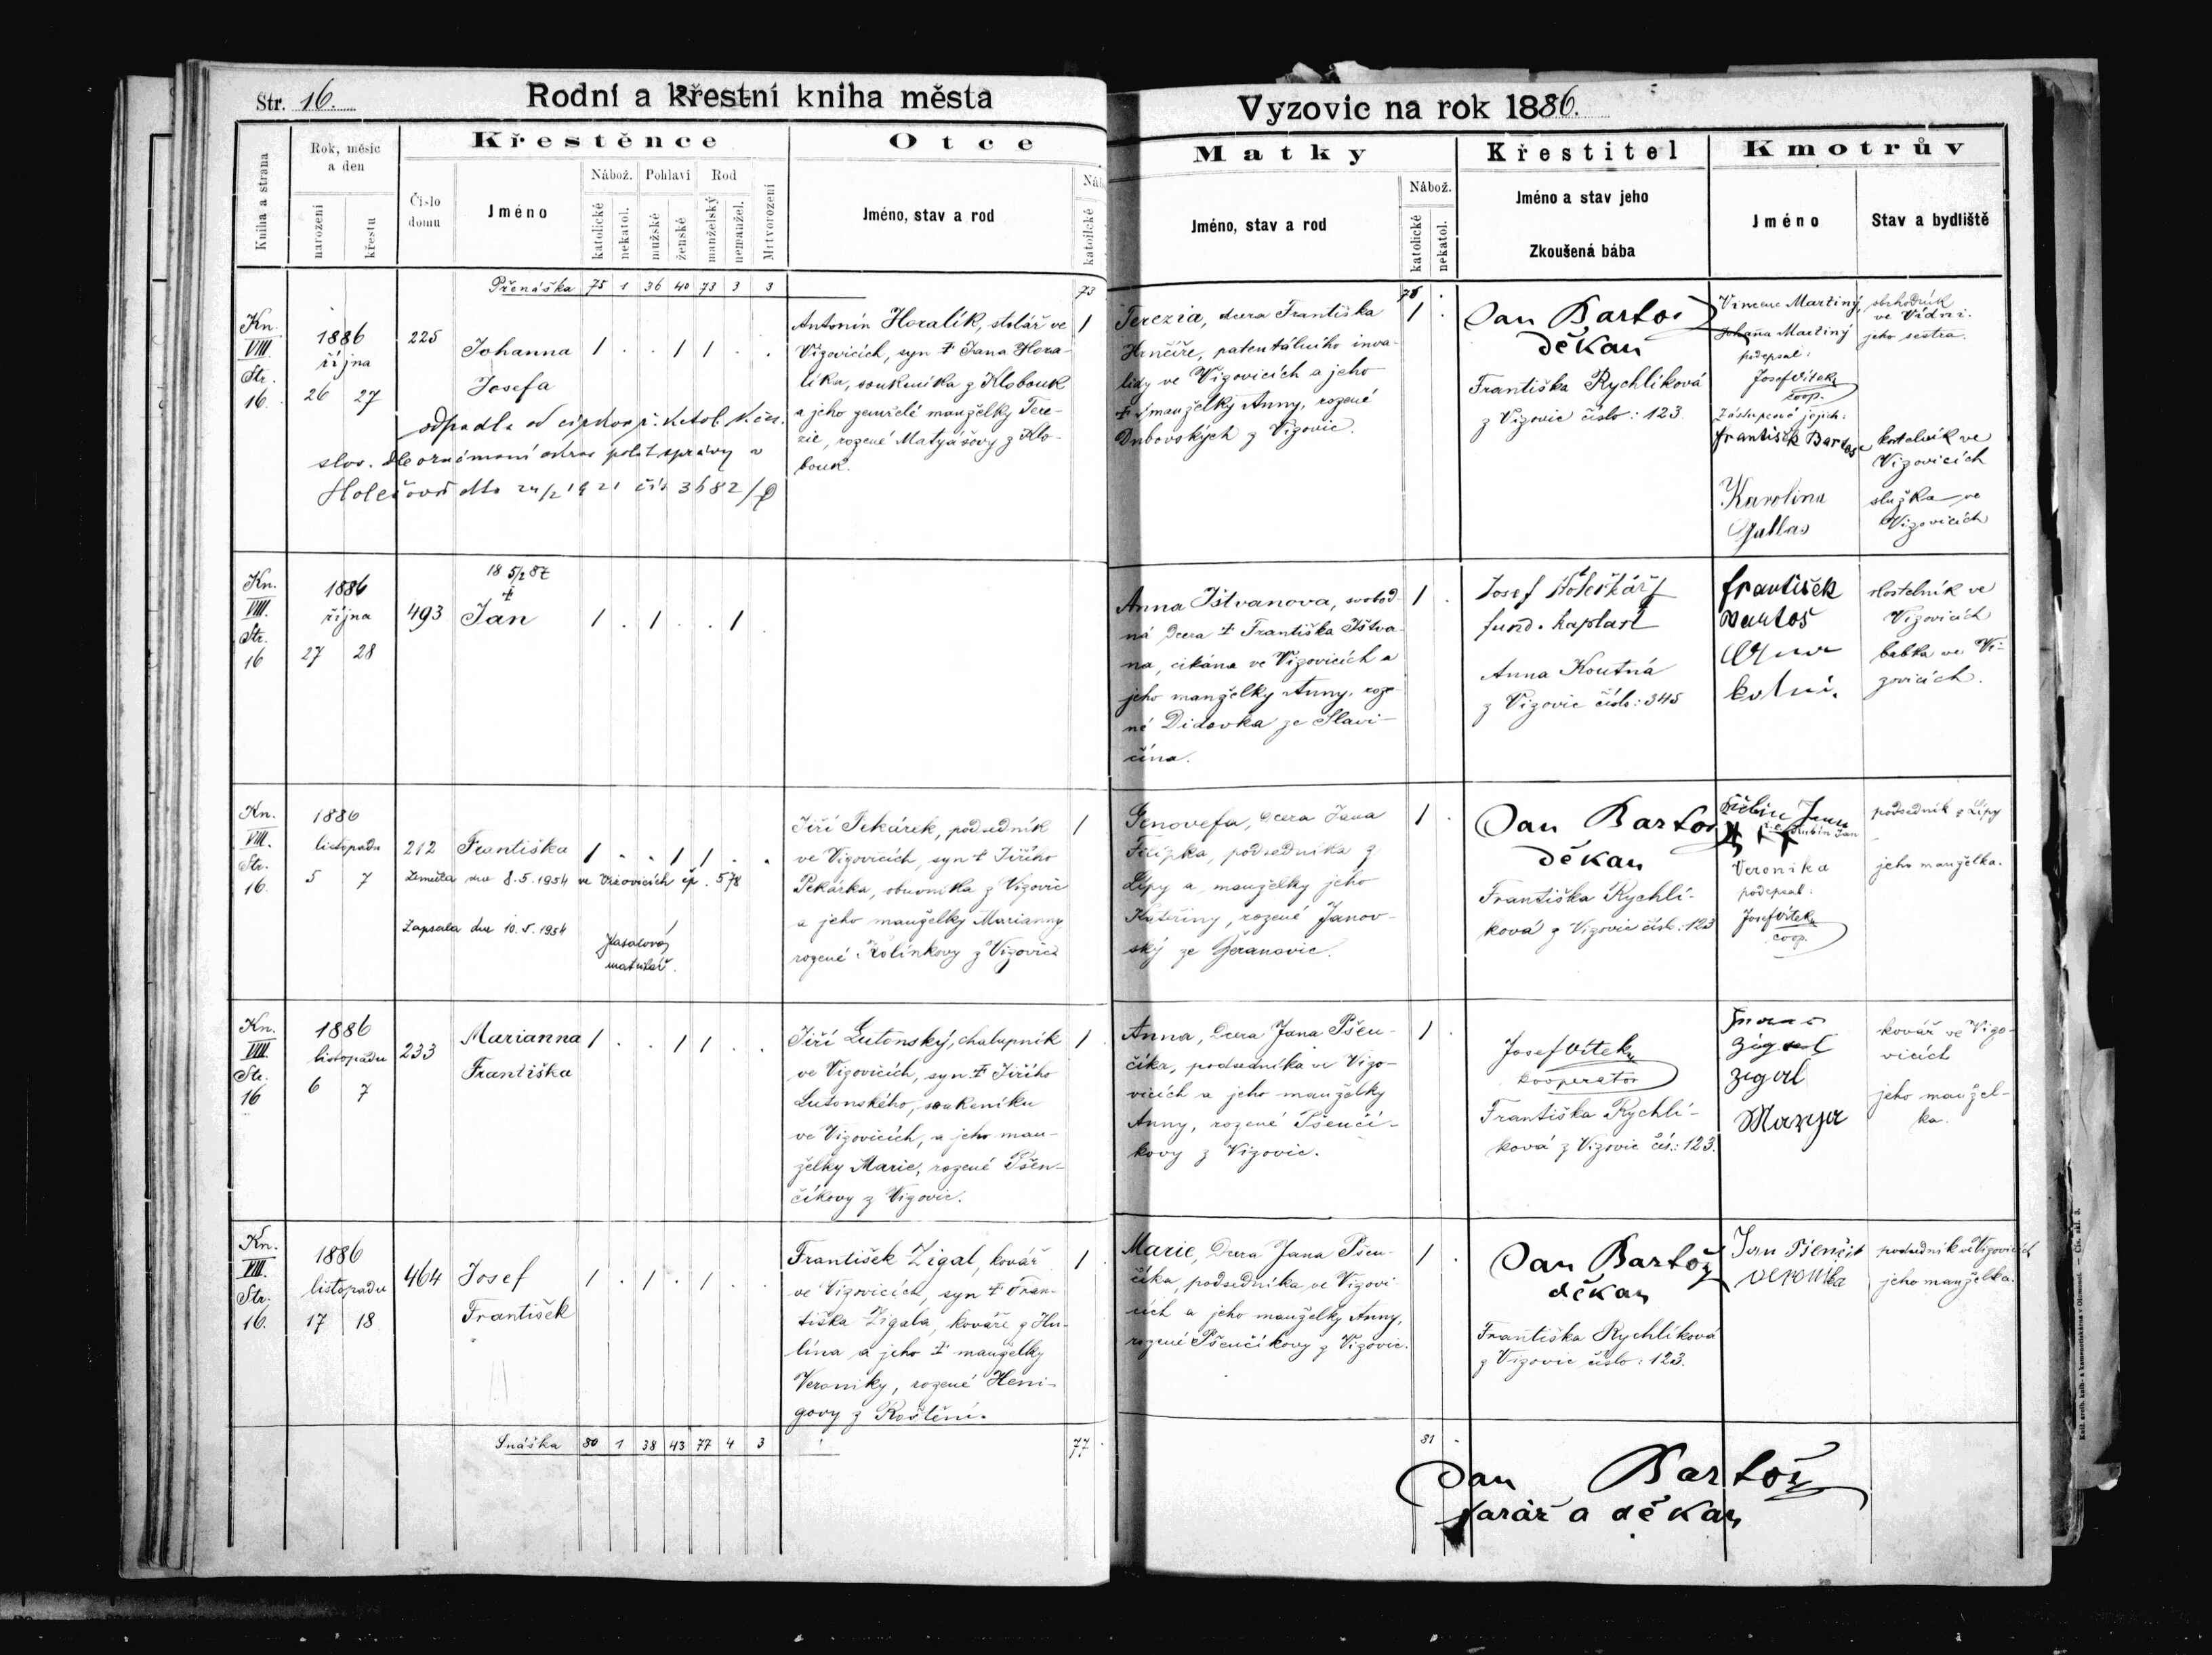 Str. 16.
Rodní a křestní kniha města
Vyzovic na rok 1886.
Kniha a strana
Rok, měsíc
a den
narození
křestu
Křestěnce
Číslo
domu
Jméno
Nábož.
katolické
nekatol.
Pohlaví
mužské
ženské
Rod
manželský
nemanžel.
Mrtvorození
Otce
Jméno, stav a rod
Náb
katolické
Matky
Jméno, stav a rod
Nábož.
katolické
nekatol.
Křestitel
Jméno a stav jeho
Zkoušená bába
Kmotrův
Jméno
Stav a bydliště
Přenáška 75 1 36 40 73 3 3
73
Kn.
VIII.
Str.
16.
1886
října
26 27
225
Johanna
Josefa
1 . . 1 1 . .
odpadla od círk
slov. dle oznámení
Holešově dto 24/2 1921 čís
Antonín Horalík, stolář ve
Vizovicích, syn † Jana Hora-
líka, soukeníka z Klobouk
a jeho zemřelé manželky Tere-
zie, rozené Matyášovy z Klo-
bouk.
1
Terezia, dcera Františka
Hrnčíře, patentálního inva-
lidy ve Vizovicích a jeho
† manželky Anny, rozené
Dubovských z Vizovic.
1 .
Jan Bartoš
děkan
Františka Rychlíková
z Vizovic číslo: 123
Vincenc Martiný,
Johana Martiný
podepsal:
Josef Vítek
coop.
Zástupcové jejich:
František Bartoš
Karolina
Gallas
obchodník
ve Vídni.
jeho sestra.
kostelník ve
Vizovicích
služka ve
Vizovicích
Kn.
VIII.
Str.
16
1886
října
27 28
493
18 5/2 87
†
Jan
1 . 1 . . 1
Anna Ištvanova, svobod-
ná dcera † Františka Ištva-
na, cikána ve Vizovicích a
jeho manželky Anny, roze-
né Didovka ze Slavi-
čína.
1 .
Josef
fund. kaplan
Anna Koutná
z Vizovic číslo: 345
František
Bartoš
kostelník ve
Vizovicích
babka ve Vi-
zovicích.
Kn.
VIII.
Str.
16.
1886
listopadu
5 7
212
Františka
1 . . 1 1 . .
Zemřela dne 8.5.1954 ve Vizovicích čp. 578
Zapsala dne 10.5.1954
matrikář.
Jiří Pekárek, podsedník
ve Vizovicích, syn † Jiřího
Pekárka, obuvníka z Vizovic
a jeho manželky Marianny
rozené Kolínkovy z Vizovic
1
Genovefa, dcera Jana
Filípka, podsedníka z
Lípy a manželky jeho
Kateřiny, rozené Janov-
ský ze Želanovic.
1 .
Jan Bartoš
děkan
Františka Rychlí-
ková z Vizovic čísl.: 123
Jan
Veronika
podepsal:
Josef Vítek
coop.
podsedník z Lípy
jeho manželka.
Kn.
VIII.
Str.
16
1886
listopadu
6 7
233
Marianna
Františka
1 . . 1 1 . .
Jiří Lutonský, chalupník
ve Vizovicích, syn † Jiřího
Lutonského, soukeníku
ve Vizovicích, a jeho man-
želky Marie, rozené Pšen-
číkovy z Vizovic.
1
Anna, dcera Jana Pšen-
číka, podsedníka ve Vizo-
vicích a jeho manželky
Anny, rozené Pšenčí-
kovy z Vizovic.
1 .
Josef Vítek
kooperátor
Františka Rychlí-
ková z Vizovic čís.: 123.
zigal
Marya
kovář ve Vizo-
vicích
jeho manžel-
ka.
Kn.
VIII.
Str.
16.
1886
listopadu
17 18
464
Josef
František
1 . 1 . 1 . .
František Zigal, kovář
ve Vizovicích, syn † Fran-
tiška Zigala, kováře z Hu-
lína a jeho † manželky
Veroniky, rozené Heni-
govy z Roštění.
1
Marie, dcera Jana Pšen-
číka, podsedníka ve Vizovi-
cích a jeho manželky Anny,
rozené Pšenčíkovy z Vizovic.
1 .
Jan Bartoš
děkan
Františka Rychlíková
z Vizovic číslo: 123.
Jan Pšenčík
veronika
podsedník ve Vizovicích
jeho manželka.
Snáška 80 1 38 43 77 4 3
77
81
Jan Bartoš
farář a děkan